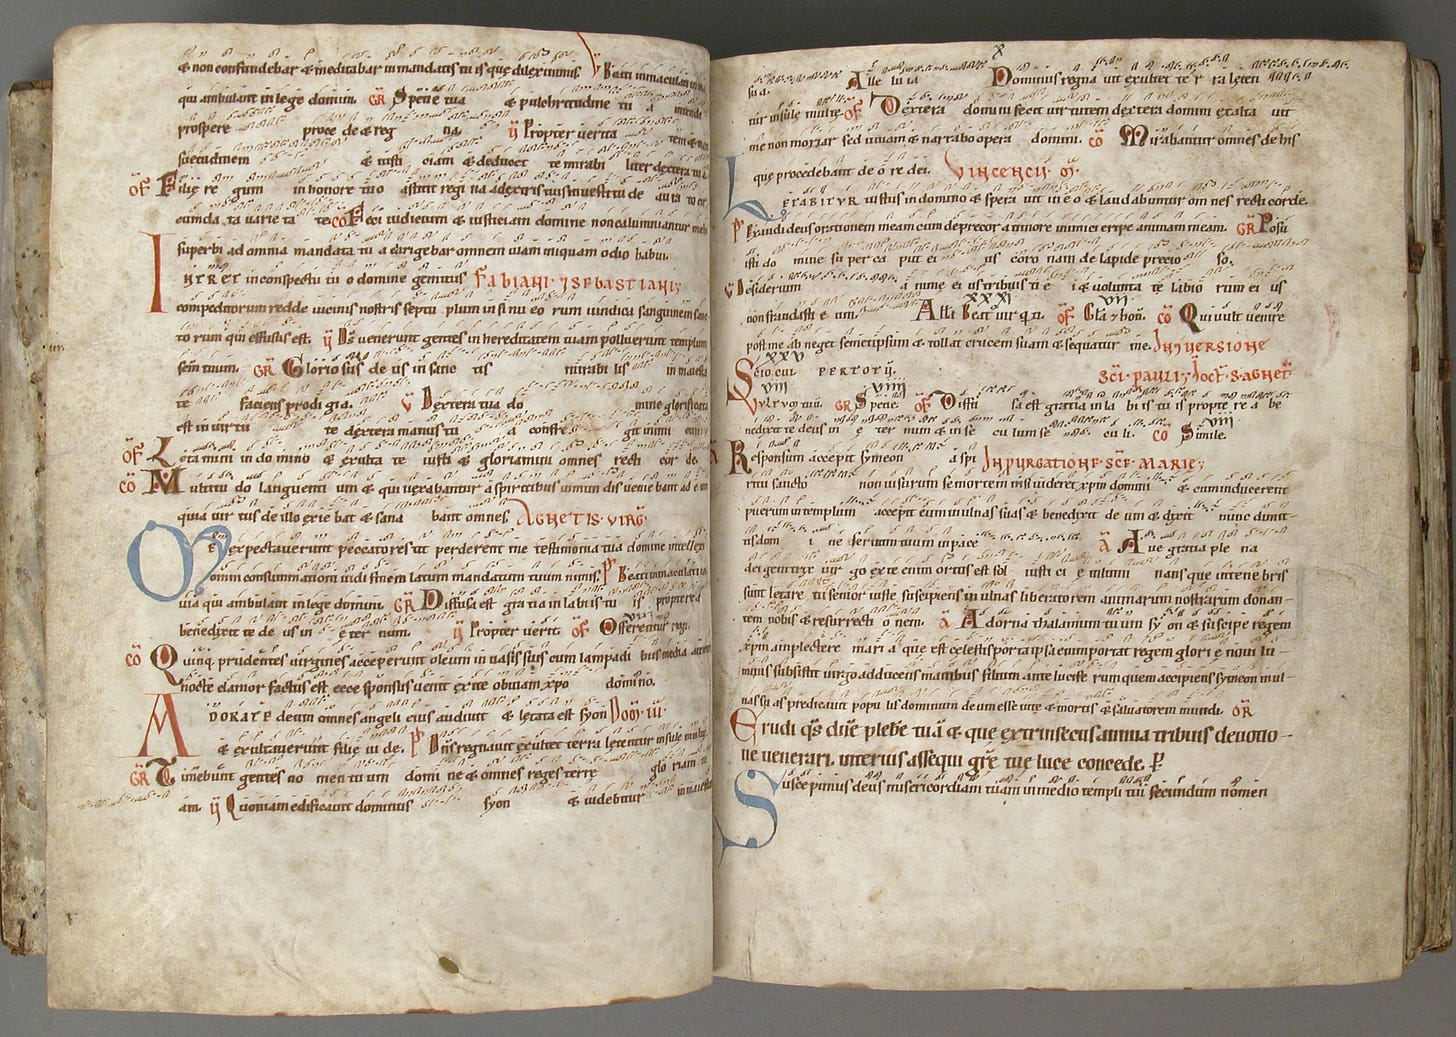 & non confundebar & meditabar in mandatis tuis que dilexi nimis. V Beati inmaculati in via
qui ambulant in lege domini. GR Specie tua & pulchritudine tua intende
prospere procede & regna. V Propter veritatem &
iustitiam & deducet te mirabiliter dextera tua
OF Filie regum in honore tuo astitit regina a dextris tuis in vestitu de aurato cir
cumdata varietate CO Feci iudicium & iustitiam domine non calumniantur mihi
superbi ad omnia mandata tua dirigebar omnem viam iniquam odio habui.
INTRET in conspectu tuo domine gemitus FABIANI. & SEBASTIANI;
compeditorum redde vicinis nostris septuplum in sinu eorum vindica sanguinem sanc
torum qui effusus est. V Ds venerunt gentes in hereditatem tuam polluerunt templum
scm tuum. GR Gloriosus deus in sanctis mirabilis in maiesta
te faciens prodigia. V Dextera tua domine glorificata
est in virtute dextera manus tua confregit inimicos
OF Letamini in domino & exulta te iusti & gloriamini omnes recti corde
CO Multitudo languentium & qui vexabantur a spiritibus inmundis veniebant ad eum
quia virtus de illo exiebat & sanabant omnes AGNETIS. VIRG.
Me expectaverunt peccatores ut perderent me testimonia tua domine intellexi
omni consummationi vidi finem latum mandatum tuum nimis. P Beati inmaculati in
via qui ambulant in lege domini. GR Diffusa est gratia in labiis tuis propterea
benedixit te deus in eternum. V Propter verit. OF Offerentur regi.
CO Quinque prudentes virgines acceperunt oleum in vasis suis cum lampadibus media autem
nocte clamor factus est ecce sponsus venit exite obviam xpo domino.
ADORATE deum omnes angeli eius audivit & letata est syon Dom. III.
& exultaverunt filie iude. P Dns regnavit exultet terra letentur insule multe
GR Timebunt gentes nomen tuum domine & omnes reges terre gloriam tu
am. V Quoniam edificavit dominus syon & videbitur in maiestate
sua. Alleluia X Dominus regnavit exultet terra leten
tur insule multe. OF Dextera domini fecit virtutem dextera domini exaltavit
me non moriar sed vivam & narrabo opera domini. CO Mirabantur omnes de his
que procedebant de ore dei. VINCENCII. M.
LETABITUR iustus in domino & speravit in eo & laudabuntur omnes recti corde.
P Exaudi deus orationem meam cum deprecor a timore inimici eripe animam meam. GR Posu
isti domine super caput eius coronam de lapide precioso.
V Desiderium anime ei us tribuisti ei & voluntate labiorum eius
non fraudasti eum. Alla XXXI Beat vir q. t. OF VII Gla & hon. CO Qui vult venire
post me abneget semetipsum & tollat crucem suam & sequatur me. IN VERSIONE
XXV Scio cui PERTOTU. SCI. PAULI; Oct. S. AGNET
VIII Vultum tuu. GR VIII Specie. OF Diffusa est gratia in labiis tuis propterea be
nedixit te deus in eternum & in seculum seculi. CO VIII Simile.
Responsum accepit symeon a spi IN PURGATIONE. SCE. MARIE;
ritu sancto non visurum se mortem nisi videret xpm domini & cum inducerent
puerum in templum accepit eum in ulnas suas & benedixit deum & dixit nunc dimit
tis domine servum tuum in pace A Ave gratia plena
dei genitrix virgo ex te enim ortus est sol iusticie illuminans que in tenebris
sunt letare tu senior iuste suscipiens in ulnas liberatorem animarum nostrarum donan-
tem nobis & resurrectionem. A Adorna thalamum tuum syon & suscipe regem
xpm amplectere mariam que est celestis porta ipsa enim portat regem glorie novi lu-
minis subsistit virgo adducens manibus filium ante luciferum quem accipiens symeon in ul-
nas suas predicavit populis dominum deum esse vite & mortis & salvatorem mundi. OR
Erudi qs dne plebe tua & que extrinsecus annua tribuis devotio-
ne venerari. interius assequi gre tue luce concede. P
Suscepimus deus misericordiam tuam in medio templi tui secundum nomen